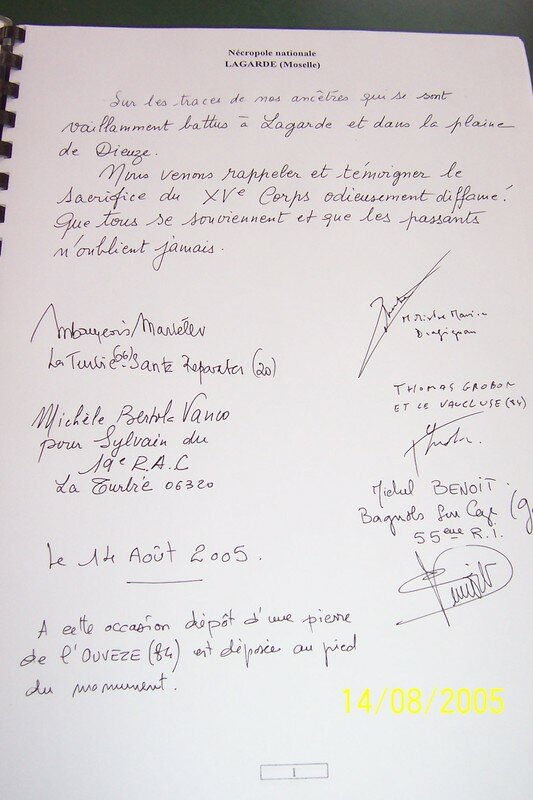 Nécropole nationale
LAGARDE (Moselle)
Sur les traces de nos ancêtres qui se sont
vaillamment battus à Lagarde et dans la plaine
de Dieuze.
Nous venons rappeler et témoigner le
sacrifice du XVe Corps odieusement diffamé!
Que tous se souviennent et que les passants
n'oublient jamais.
La Turbie (06) & Santa Reparata (20)
Michèle Bertola-Vanco
pour Sylvain du
19e R.A.C
La Turbie 06320
Le 14 Août 2005.
A cette occasion dépôt d'une pierre
de l'OUVEZE (84) est déposée au pied
du monument.
Draguignan
THOMAS GROBON
ET LE VAUCLUSE (84)
Michel BENOIT.
Bagnols Sur Ceze (g
55ème R.I.
14/08/2005
1